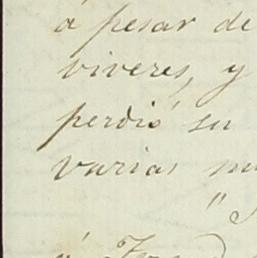 á pesar de
viveres, y
perdió su
varias